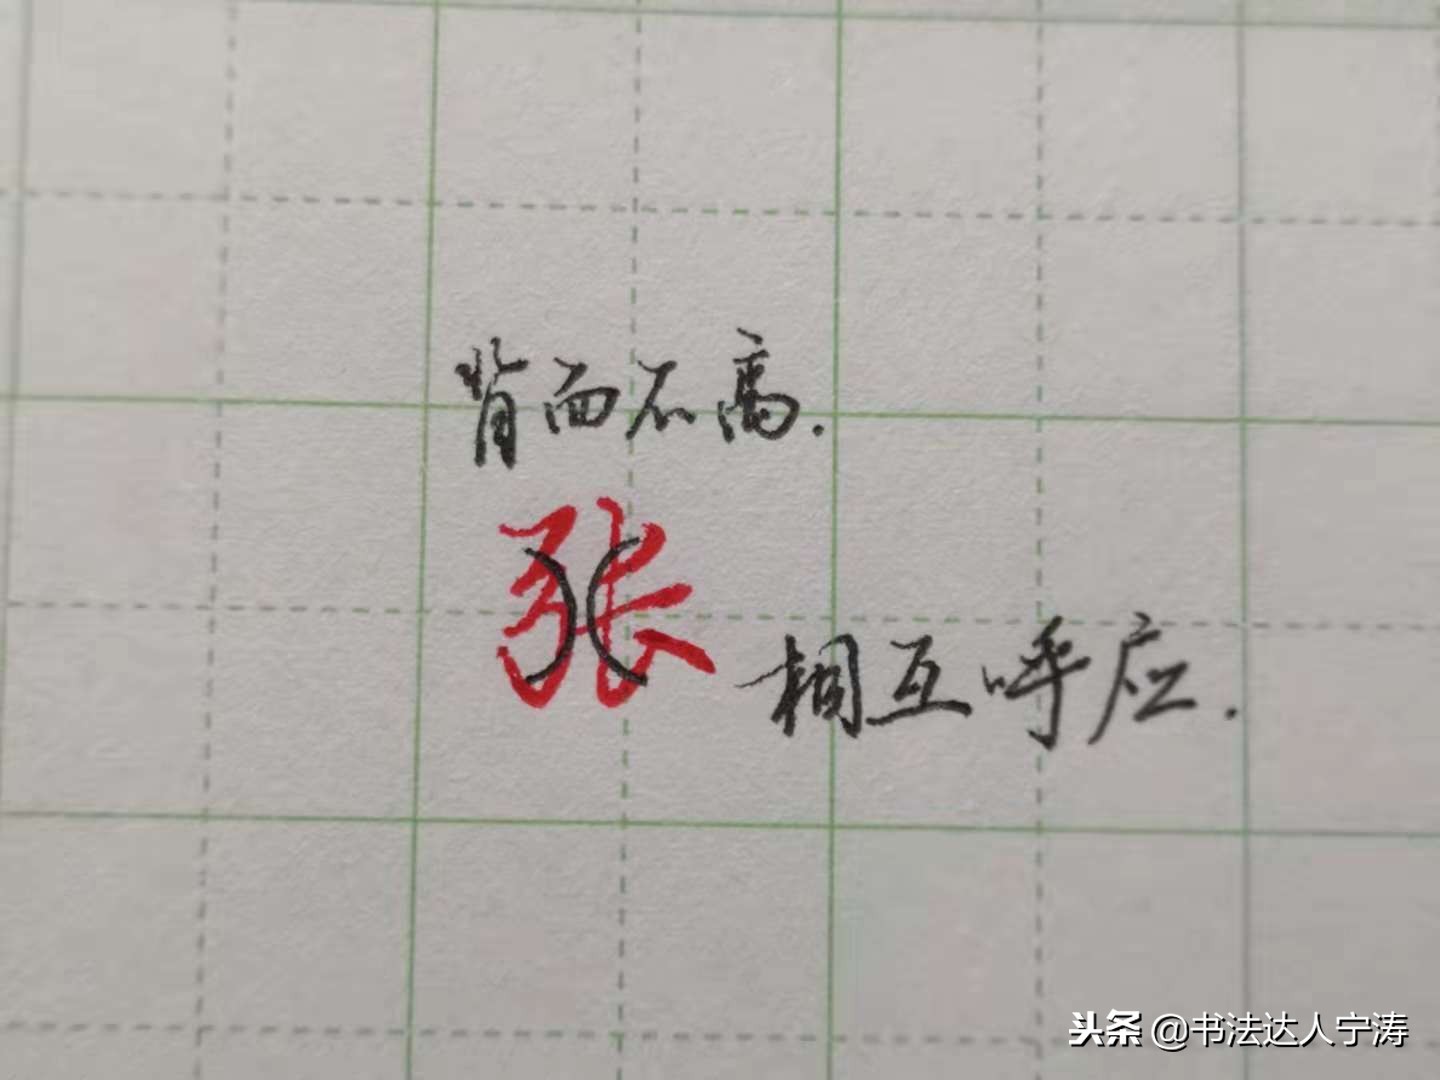 背而不离.
张
相互呼应.
头条 @书法达人宁涛